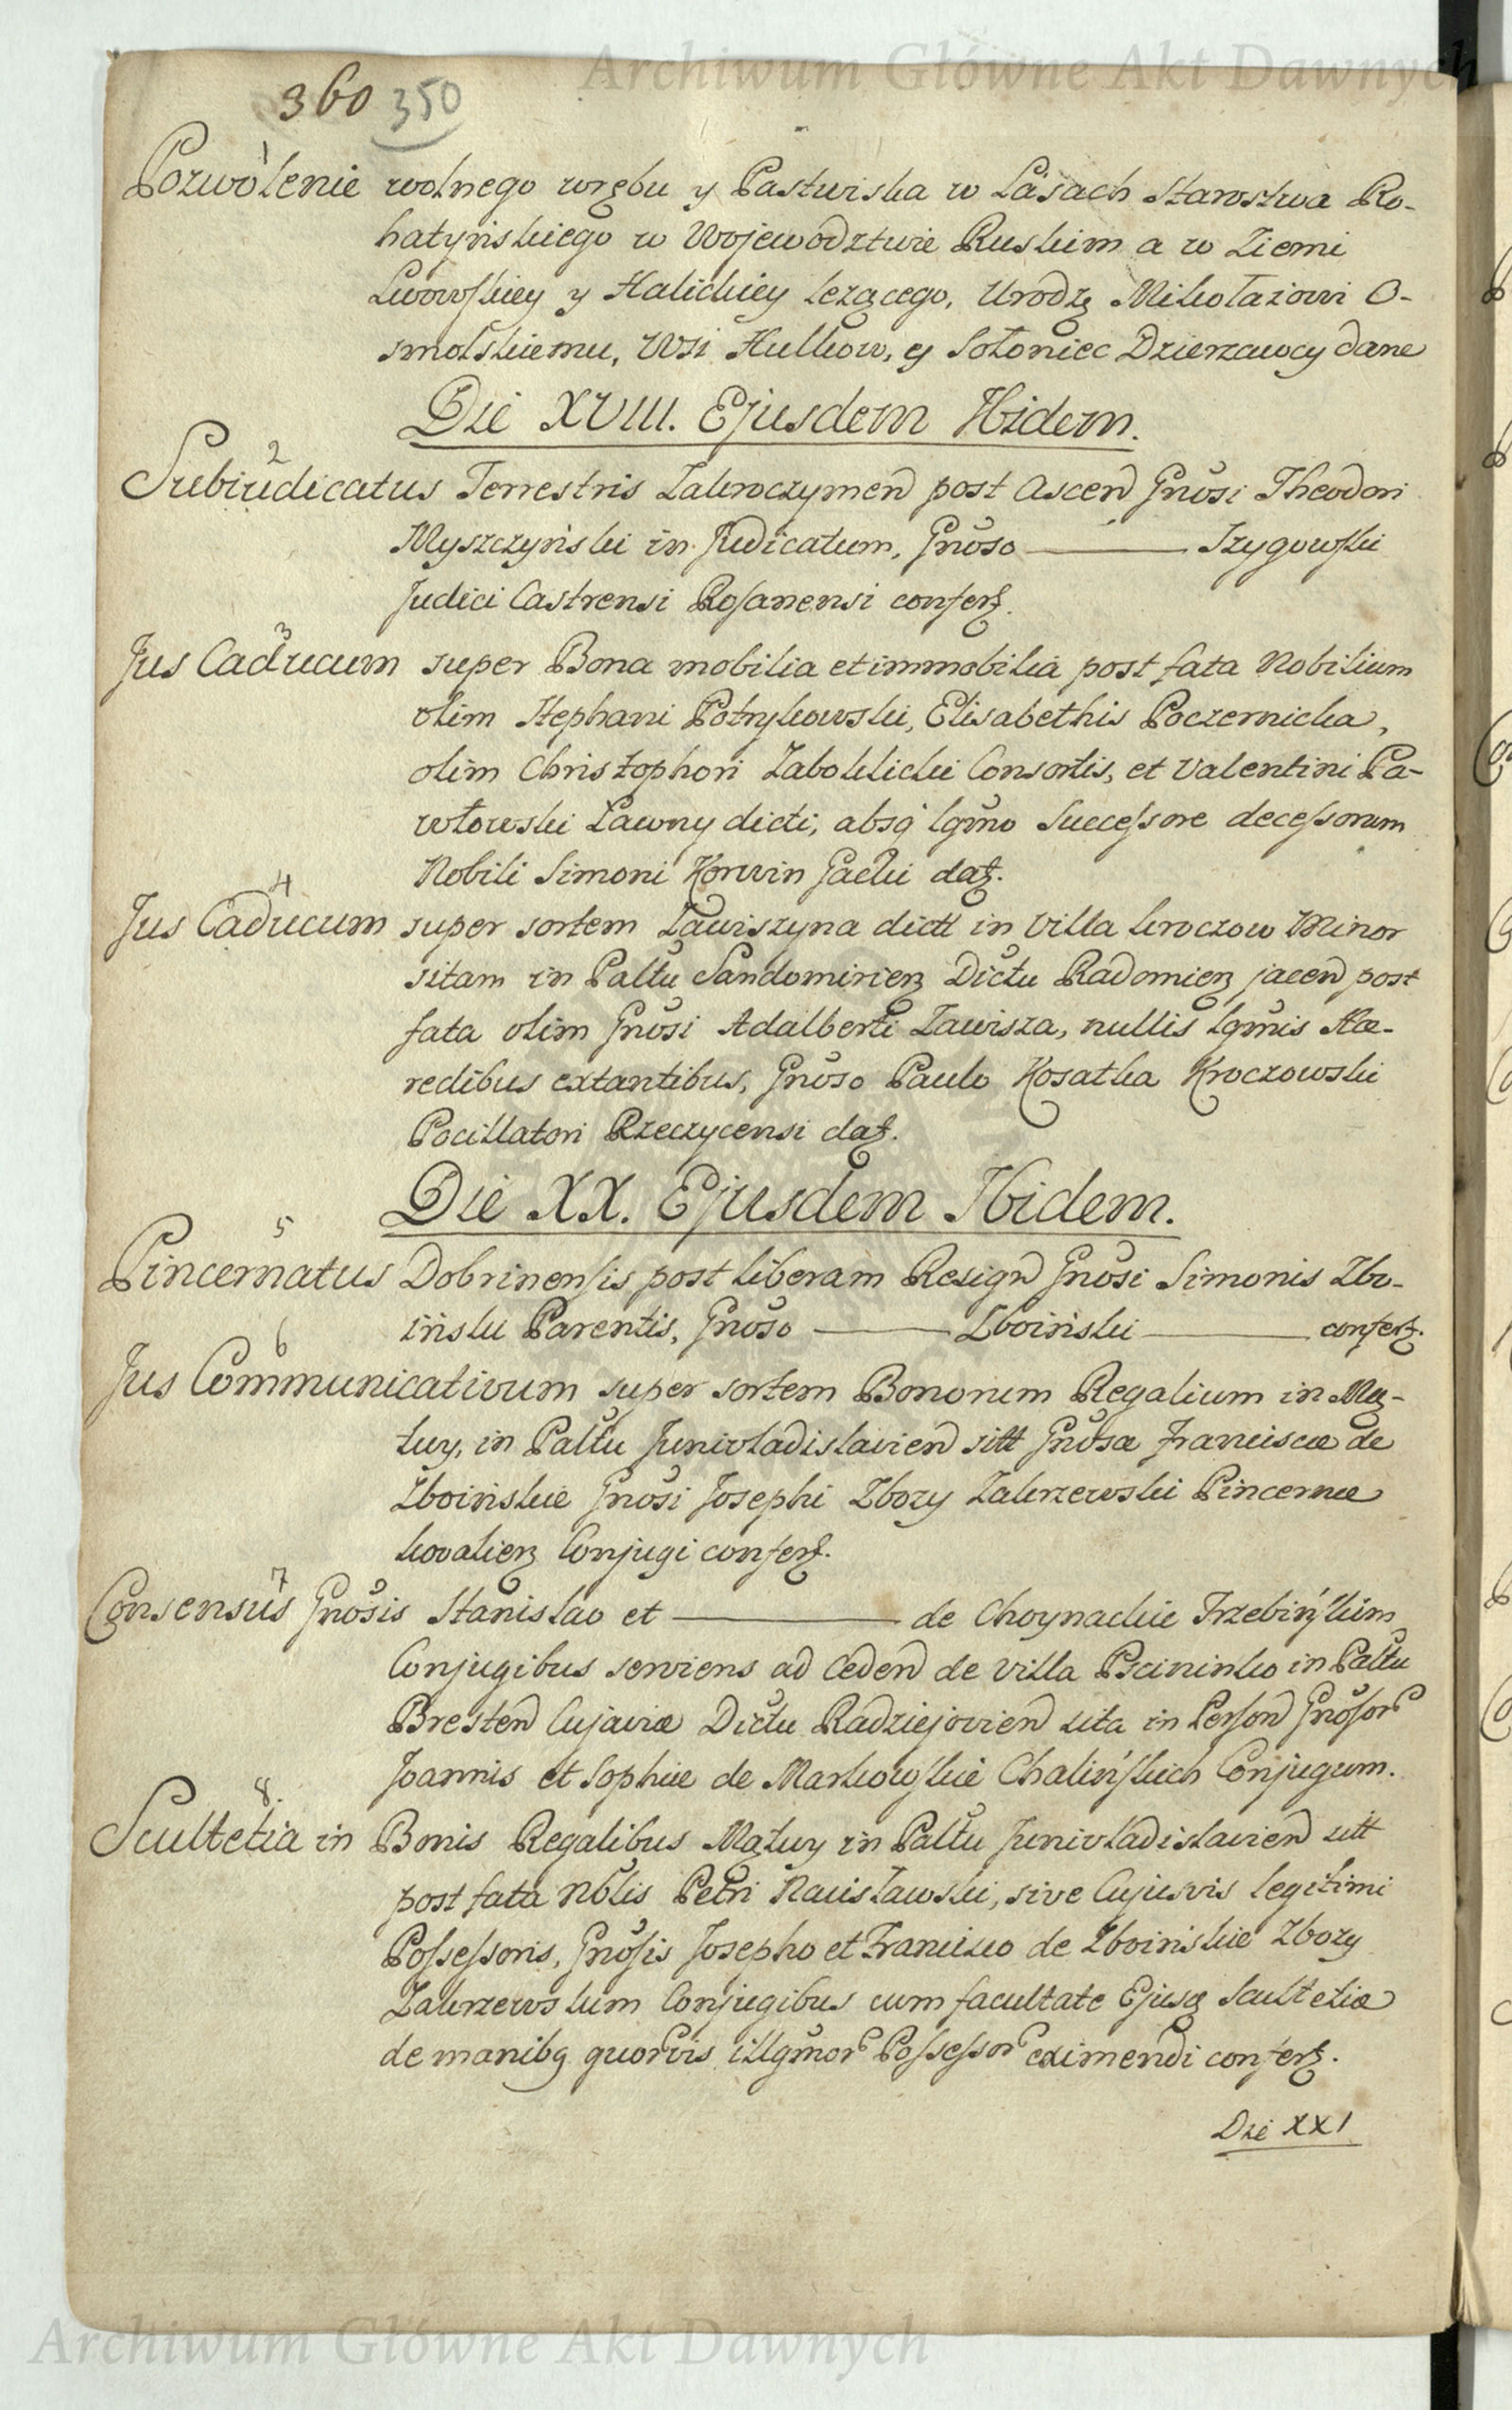 Archiwum Główne Akt Dawnych
360 350
1
Pozwolenie wolnego wrębu y Pastwiska w Lasach Starostwa Ro-
hatyńskiego w Wojewodztwie Ruskim a w Ziemi
Lwowskiey y Halickiey lezącego, Urodz Mikołaiowi O-
smolskiemu, Wsi Hulkow, y Sołoniec Dzierzawcy dane
Die XVIII. Ejusdem Ibidem.
2
Subiudicatus Terrestris Zakroczymen post Ascen Gnosi Theodori
Myszczyński in Judicatum, Gnoso ——— Szygowski
Judici Castrensi Rosanensi confert.
3
Jus Caducum super Bona mobilia et immobilia post fata Nobilium
olim Stephani Potrykowski, Elisabethis Poczernicka,
olim Christophori Zaboklicki Consortis, et Valentini Pa-
włowski Ławny dicti, absq lgmo Successore decessorum
Nobili Simoni Korwin Gacki dat.
4
Jus Caducum super sortem Zawiszyna dictt in Villa Kroczow Minor
sitam in Palttu Sandomirien Dictu Radomien jacen post
fata olim Gnosi Adalberti Zawisza, nullis lgmis Hæ-
redibus extantibus, Gnoso Paulo Kosatka Kroczowski
Pocillatori Rzeczycensi dat.
Die XX. Ejusdem Ibidem.
5
Pincernatus Dobrinensis post liberam Resign Gnosi Simonis Zbo-
iński Parentis, Gnoso ——— Zboiński ——— confert.
6
Jus Communicativum super sortem Bonorum Regalium in Mą-
twy, in Palttu Junivladislavien sitt Gnosæ Franciscæ de
Zboińskie Gnosi Josephi Zbozy Zakrzewski Pincernæ
Kovalien Conjugi confert.
7
Consensus Gnosis Stanislao et ——— de Choynackie Trzebińskim
Conjugibus serviens ad Ceden de Villa Pscininko in Palttu
Bresten Cujaviæ Dictu Radziejovien sita in Person Gnosor
Joannis et Sophiæ de Markowskie Chalińskich Conjugum.
8.
Scultetia in Bonis Regalibus Mątwy in Palttu Junivladislavien sitt
post fata Nblis Petri Racisławski, sive Cujusvis legitimi
Possessoris, Gnosis Josepho et Francisco de Zboińskie Zbozy
Zakrzewskim Conjugibus cum facultate Ejusq Scultetiæ
de manibq quorvis illgmor Possessor eximendi confert.
Die XXI
Archiwum Główne Akt Dawnych